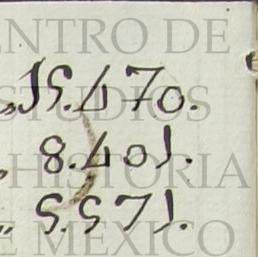 ENTRO DE
„15.470.
STUDIOS
„ 8.401.
HISTORIA
„ 5.571.
E MEXICO